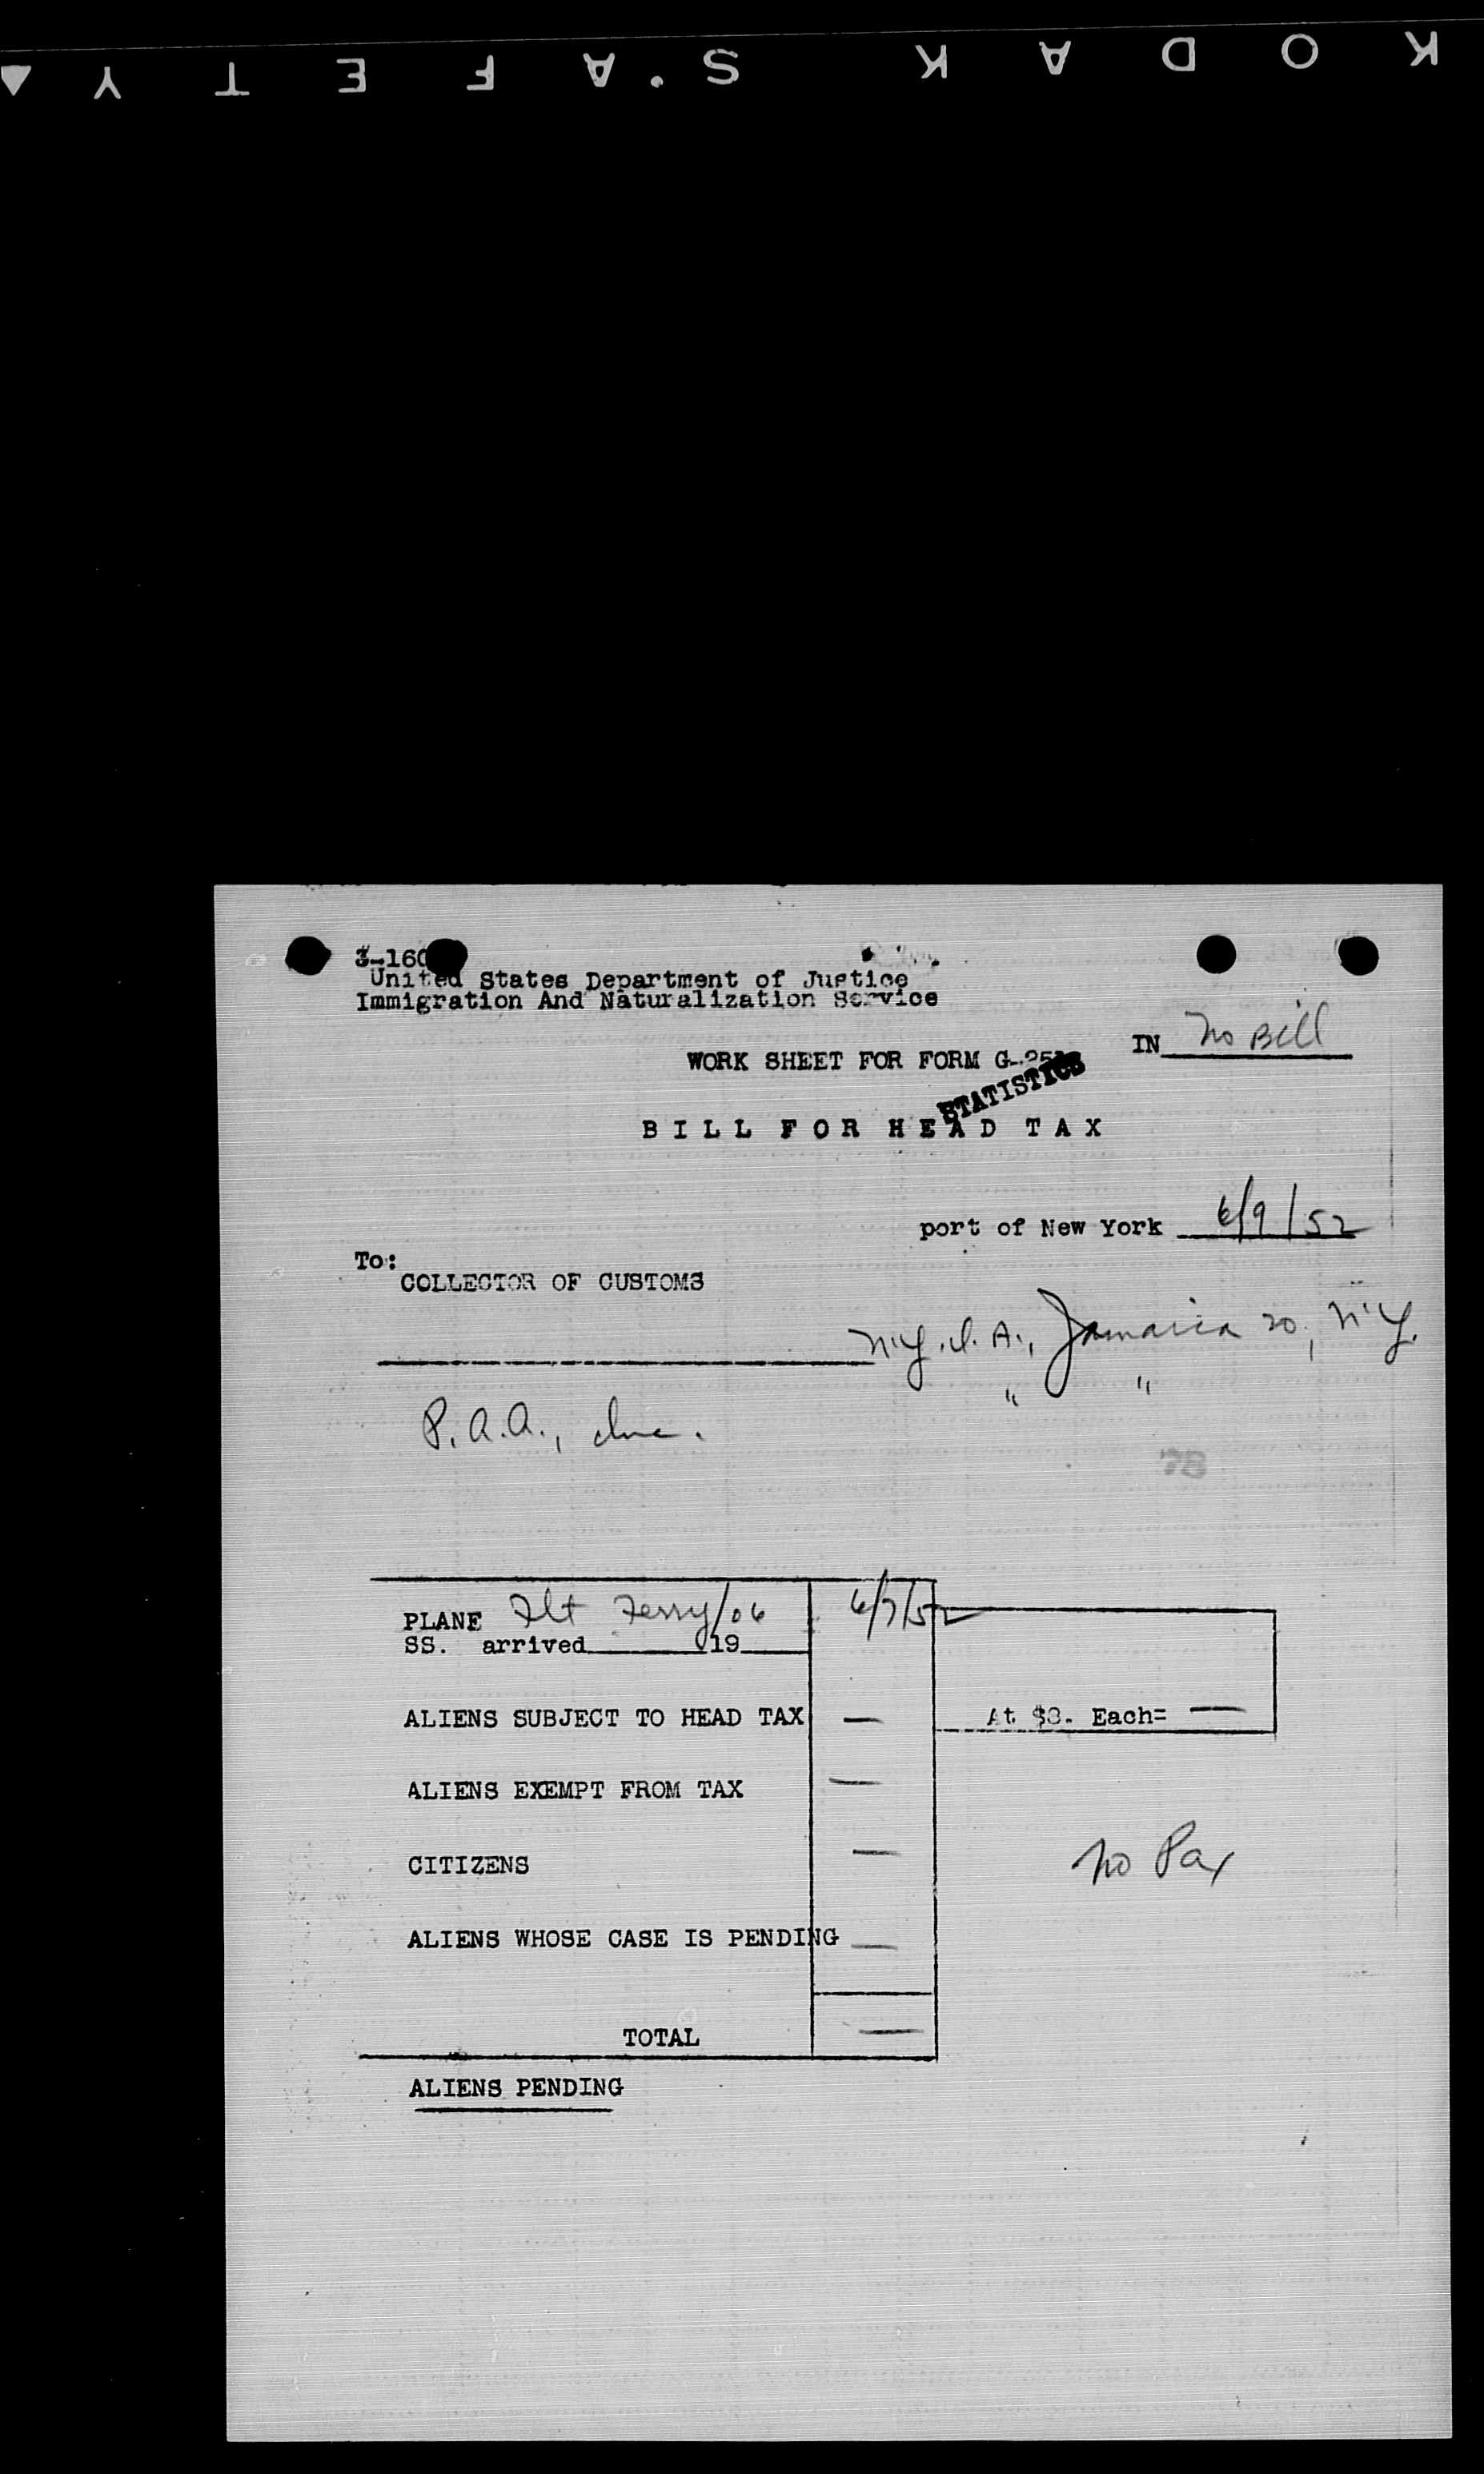 KODAK S.AFETY
3-160
United States Department of Justice
Immigration And Naturalization Service
IN No Bill
WORK SHEET FOR FORM G-25
STATISTICS
BILL FOR HEAD TAX
port of New York 6/9/52
To:
COLLECTOR OF CUSTOMS
N.Y.I.A., Jamaica 20, N.Y.
" "
P.A.A., Inc.
78
PLANE Flt Ferry/06 6/7/52
SS. arrived 19
ALIENS SUBJECT TO HEAD TAX — At $8. Each= —
ALIENS EXEMPT FROM TAX —
CITIZENS — No Pax
ALIENS WHOSE CASE IS PENDING —
TOTAL —
ALIENS PENDING